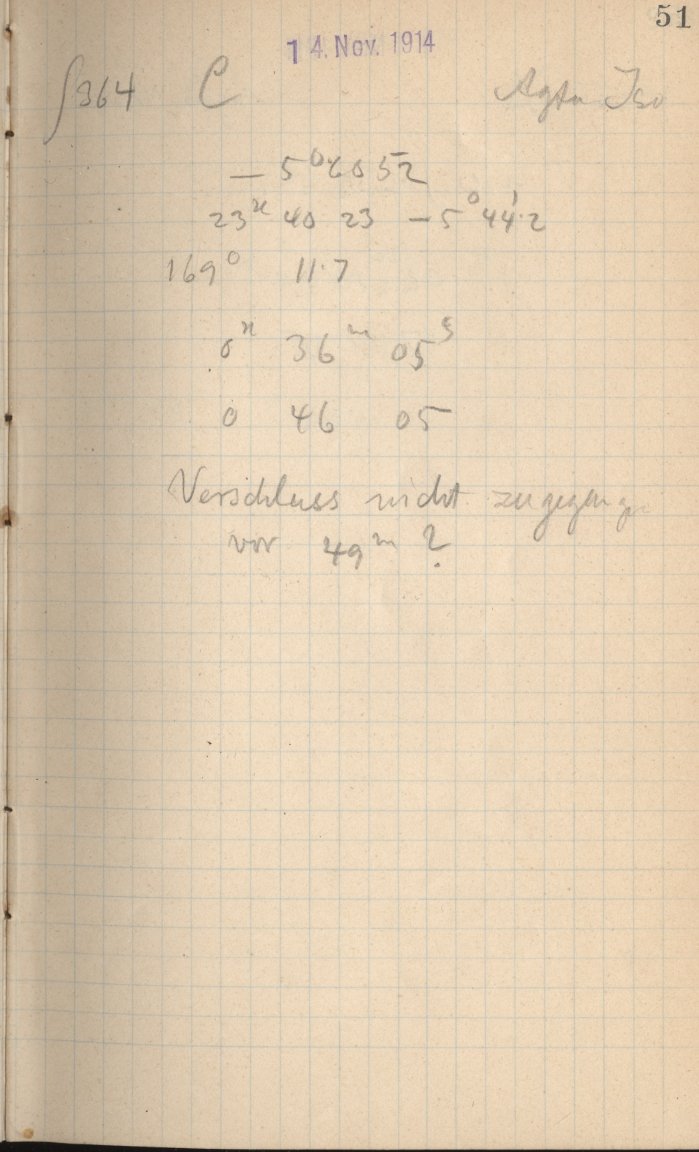 51
14. Nov. 1914
364 C Agfa Iso
– 5° 52
23ʰ 40 23 – 5° 44'.2
169° 11.7
0ʰ 36ᵐ 05ˢ
0 46 05
Verschluss nicht
vor 49ᵐ ?